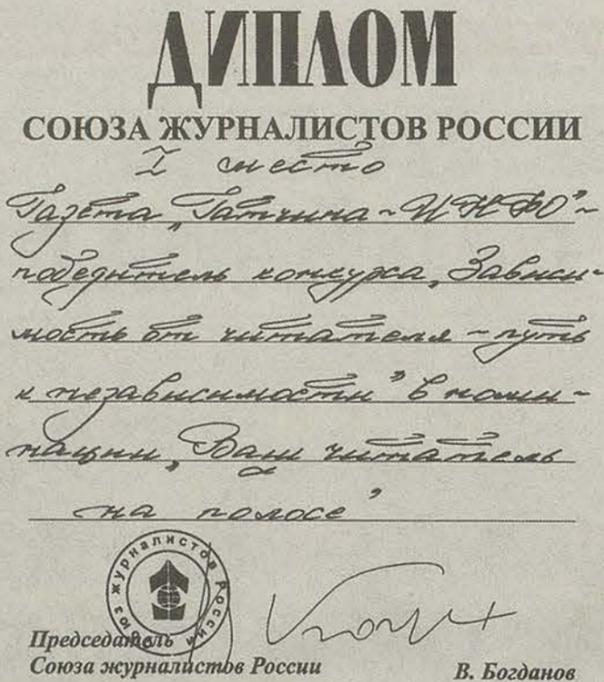 ДИПЛОМ
СОЮЗА ЖУРНАЛИСТОВ РОССИИ
I место
Газета „Гатчина-ИНФО"-
победитель конкурса „Зависи-
мость от читателя - путь
к независимости" в номи-
нации „Ваш читатель
на полосе"
Союз журналистов России
Председатель
Союза журналистов России
В. Богданов